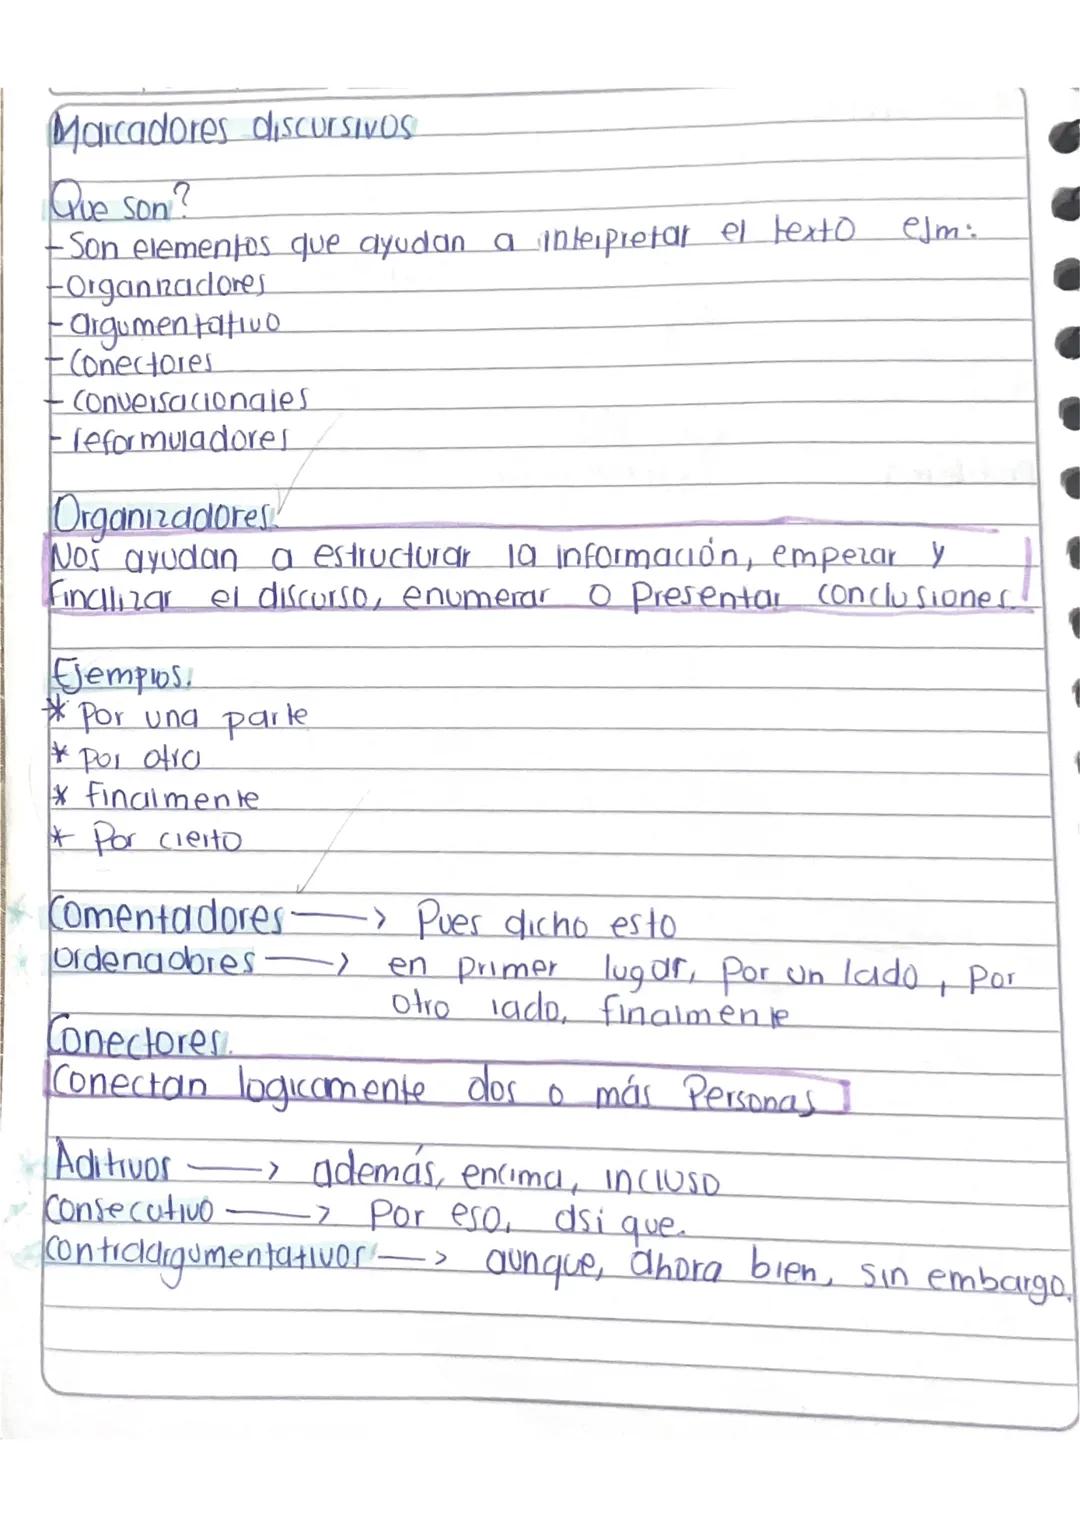 Marcadores discursivos
Que son?
- Son elementos que ayudan a interpretar el texto ejm:
- Organizadores
- argumentativo
- Conectores
- conversacionales
- reformuladores
Organizadores.
Nos ayudan a estructurar la información, empezar y
Finalizar el discurso, enumerar o Presentar conclusiones.
Ejemplos.
* Por una parte
* por otra
* Finalmente
* Por cierto
Comentadores → Pues dicho esto
ordenadores → en primer lugar, Por un lado, Por
otro lado, finalmente
Conectores.
Conectan logicamente dos o más Personas
Aditivos → además, encima, incluso
Consecutivo → Por eso, asi que.
Contraargumentativos → aunque, ahora bien, sin embargo.